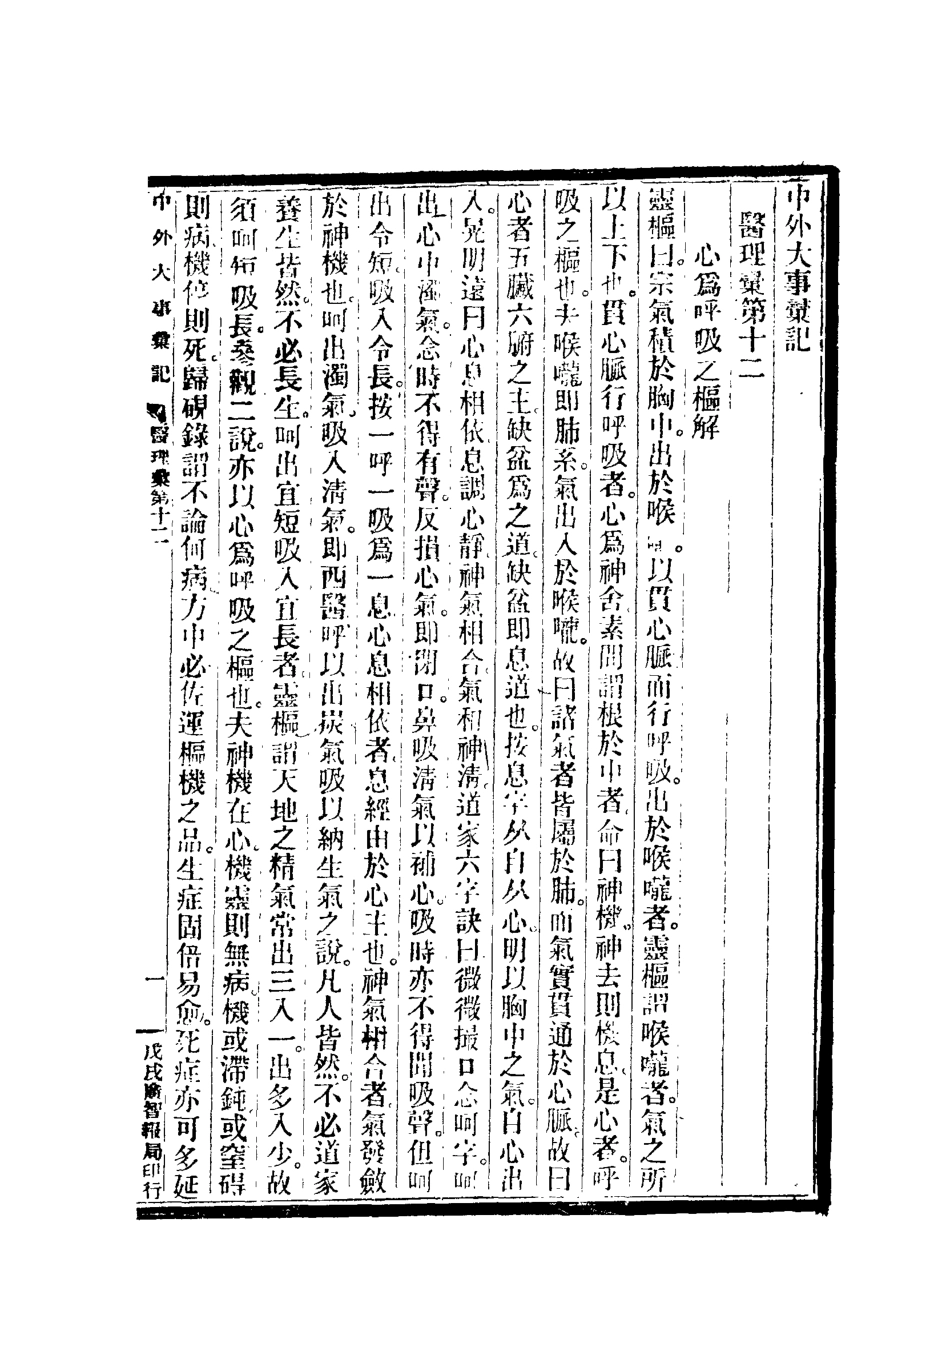 中外大事彙記
醫理彙第十二
心爲呼吸之樞解
靈樞曰。宗氣積於胸中。出於喉。以貫心脈而行呼吸。出於喉嚨者。靈樞謂喉嚨者。氣之所
以上下也。貫心脈行呼吸者。心爲神舍。素問謂根於中者。命曰神機。神去則機息。是心者。呼
吸之樞也。夫喉嚨即肺系。氣出入於喉嚨。故曰諸氣者皆屬於肺。而氣實貫通於心脈。故曰
心者五臟六腑之主。缺盆爲之道。缺盆即息道也。按息字从自从心。明以胸中之氣。自心出
入。晁明遠曰。心息相依。息調心靜。神氣相合。氣和神淸。道家六字訣曰。微微撮口念呵字。呵
出心中濁氣。念時不得有聲。反損心氣。即閉口。鼻吸淸氣以補心。吸時亦不得聞吸聲。但呵
出令短。吸入令長。按一呼一吸爲一息。心息相依者。息經由於心主也。神氣相合者。氣發斂
於神機也。呵出濁氣。吸入淸氣。即西醫呼以出炭氣吸以納生氣之說。凡人皆然。不必道家
養生皆然。不必長生。呵出宜短吸入宜長者。靈樞謂天地之精氣。常出三入一。出多入少。故
須呵短吸長。參觀二說。亦以心爲呼吸之樞也。夫神機在心。機靈則無病。機或滯鈍。或窒碍
則病。機停則死。歸硯錄謂不論何病。方中必佐運樞機之品。生症固倍易愈。死症亦可多延
中外大事彙記 醫理彙第十二 一 戊戌廣智報局印行